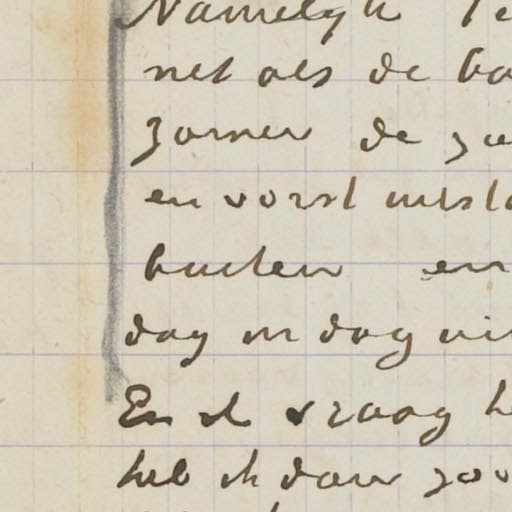 Namelyk
net als de bo
zomer de zo
en vorst uitsta
buiten en
dag in dag uit
En ik vraag he
heb ik daar zoo